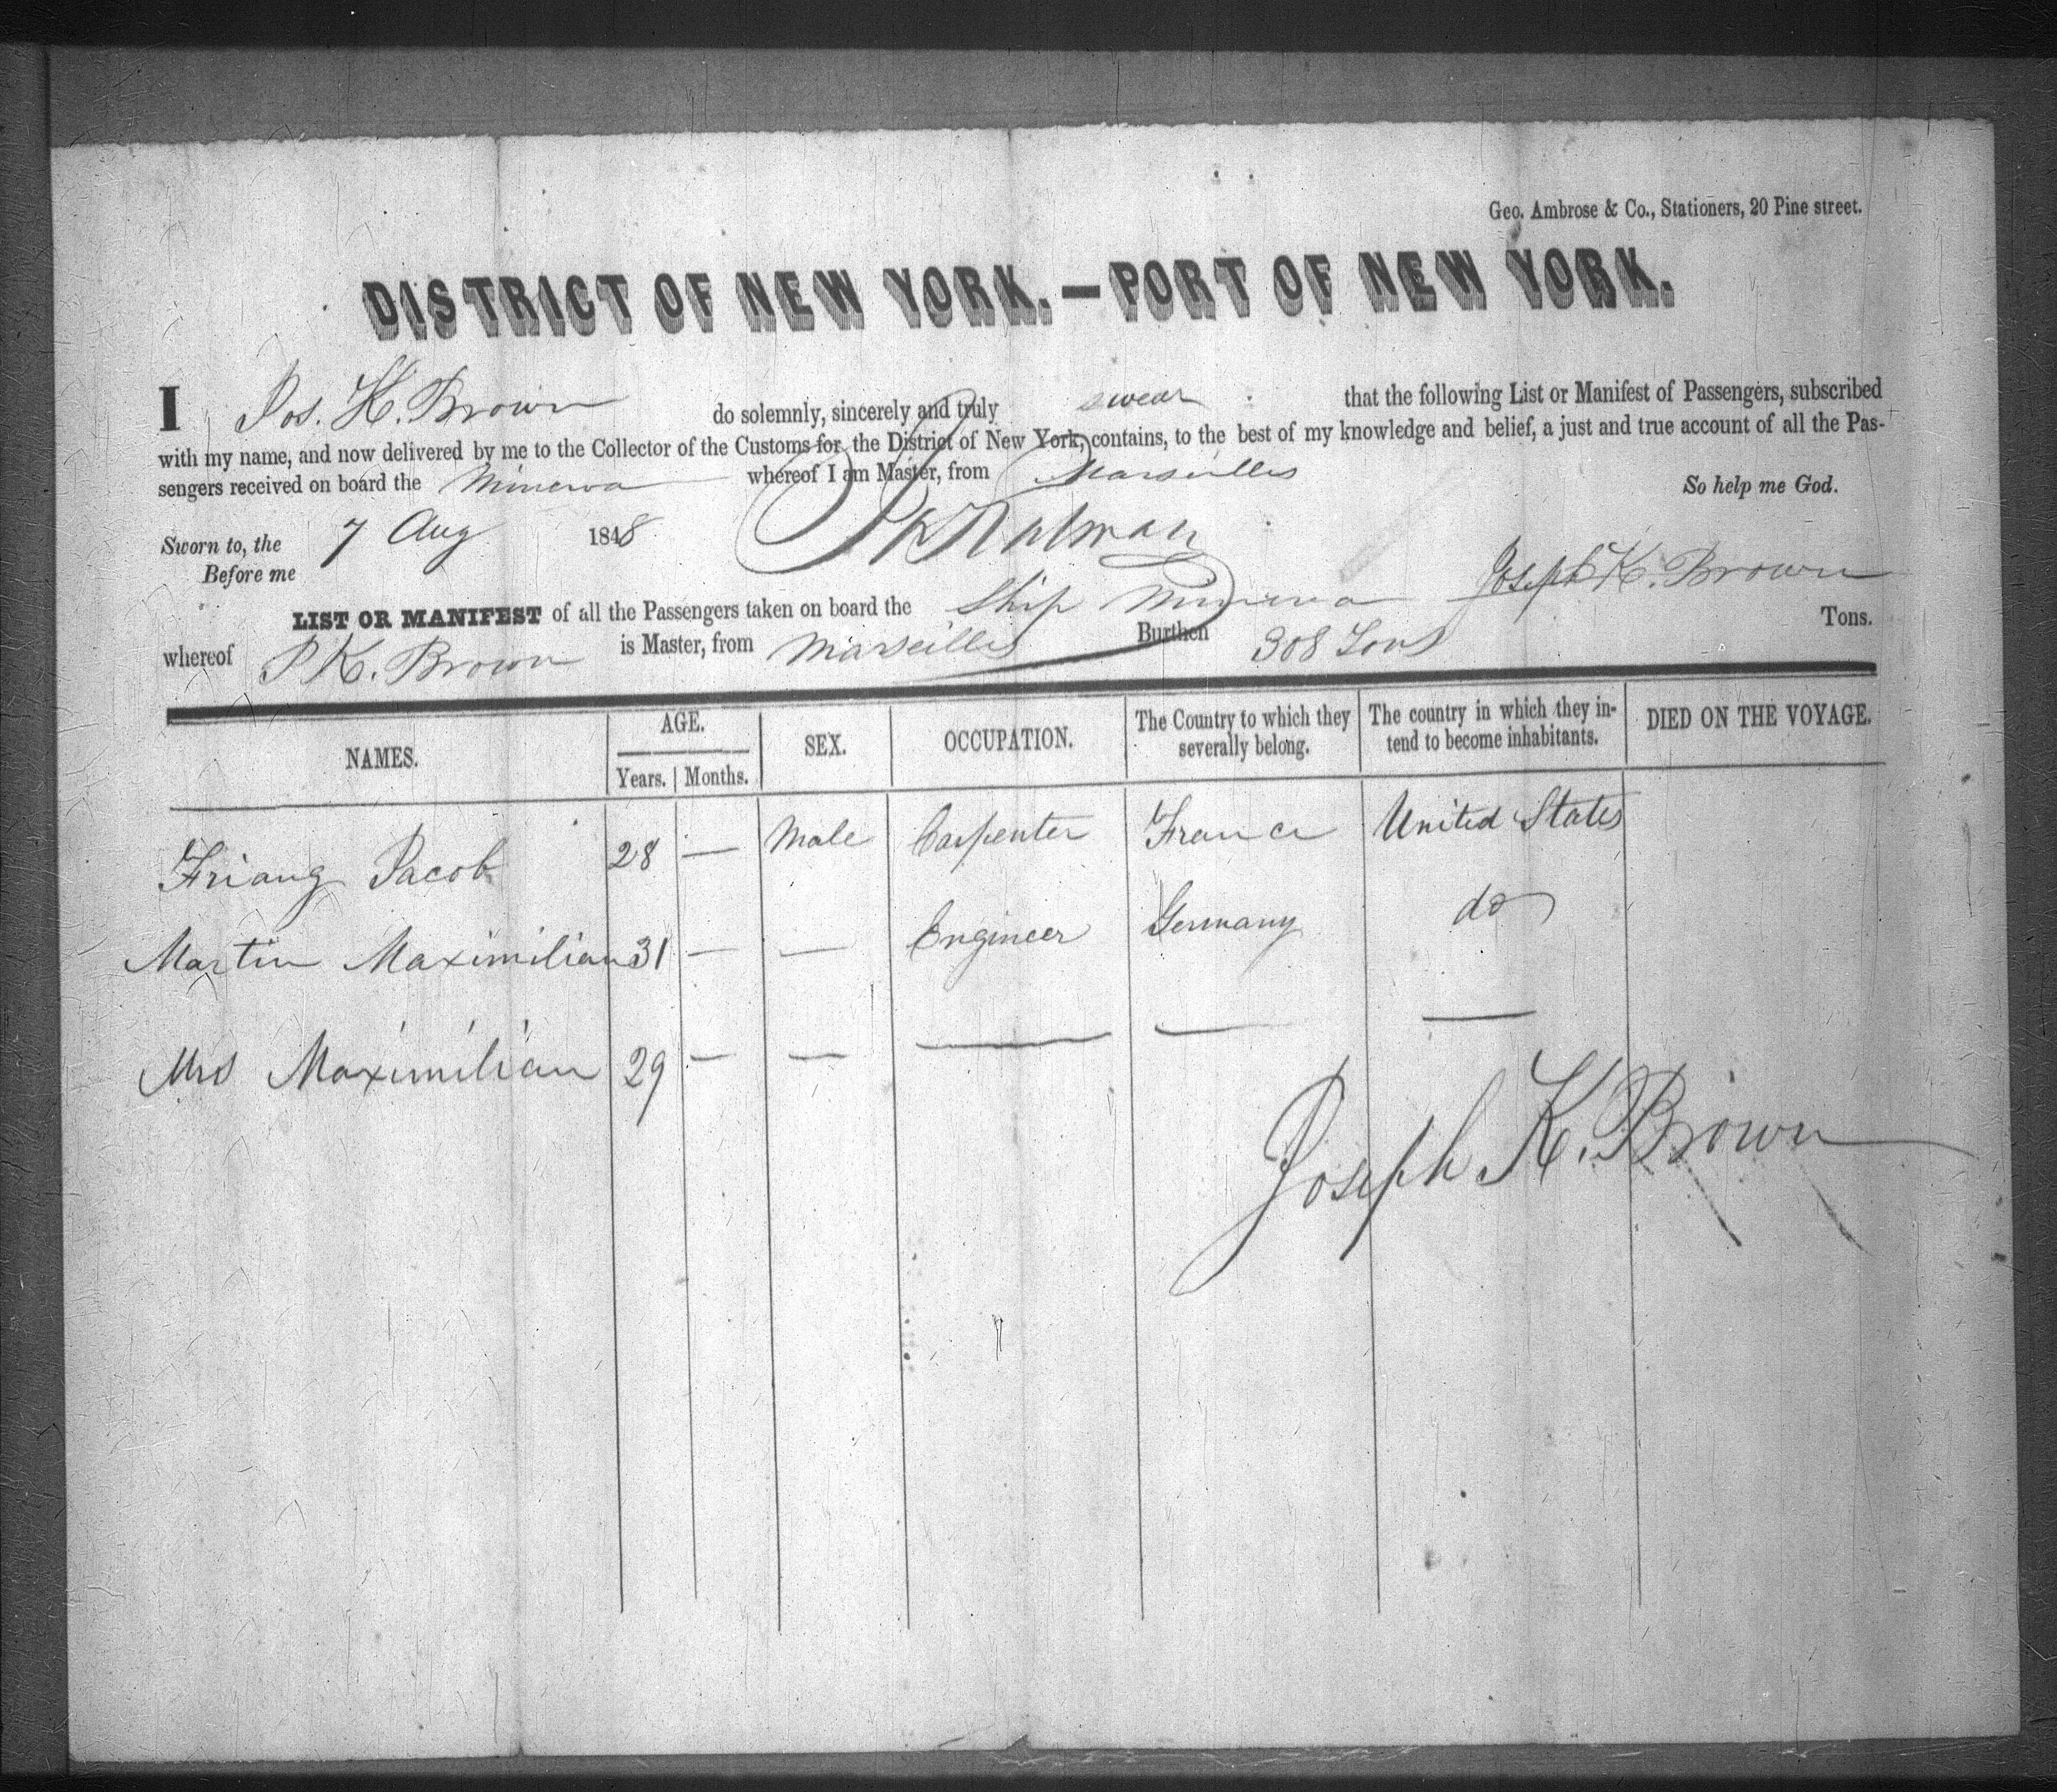 Geo. Ambrose & Co., Stationers, 20 Pine street.
DISTRICT OF NEW YORK.—PORT OF NEW YORK.
I Jos. K. Brown do solemnly, sincerely and truly swear that the following List or Manifest of Passengers, subscribed
with my name, and now delivered by me to the Collector of the Customs for the District of New York, contains, to the best of my knowledge and belief, a just and true account of all the Pas-
sengers received on board the Minerva whereof I am Master, from Marseilles
So help me God.
Sworn to, the 7 Aug 1848
Before me
Joseph K. Brown
LIST OR MANIFEST of all the Passengers taken on board the Ship Minerva
whereof J K. Brown is Master, from Marseilles Burthen 308 Tons Tons.
NAMES. AGE. SEX. OCCUPATION. The Country to which they severally belong. The country in which they in-tend to become inhabitants. DIED ON THE VOYAGE.
Years. Months.
Friang Jacob 28 — Male Carpenter France United States
Martin Maximilian 31 — — Engineer Germany do
Mrs Maximilian 29 — — — — —
Joseph K. Brown